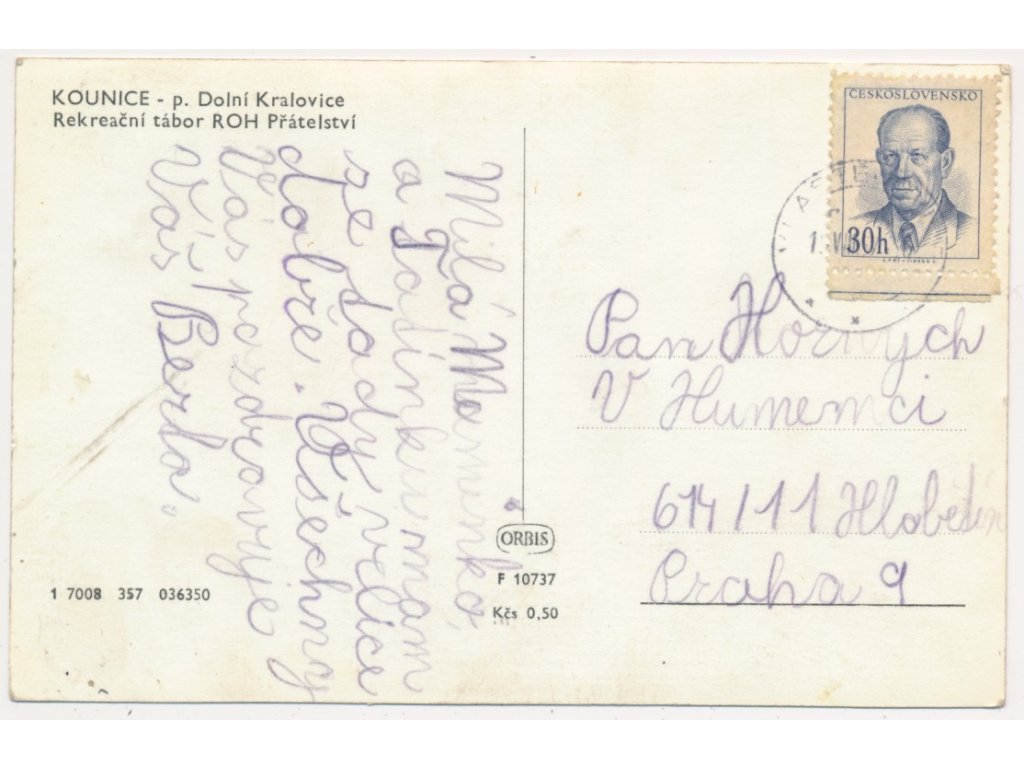 KOUNICE - p. Dolní Kralovice
Rekreační tábor ROH Přátelství
Milá Maminko,
a Tatínku, mám
se tady velice
dobře. Všechny
Vás pozdravuje
Váš Berla.
ČESKOSLOVENSKO
30h
VLAST
Pan Horných
V Humenci
614/11 Hloubětín
Praha 9
ORBIS
F 10737
Kčs 0,50
1 7008 357 036350